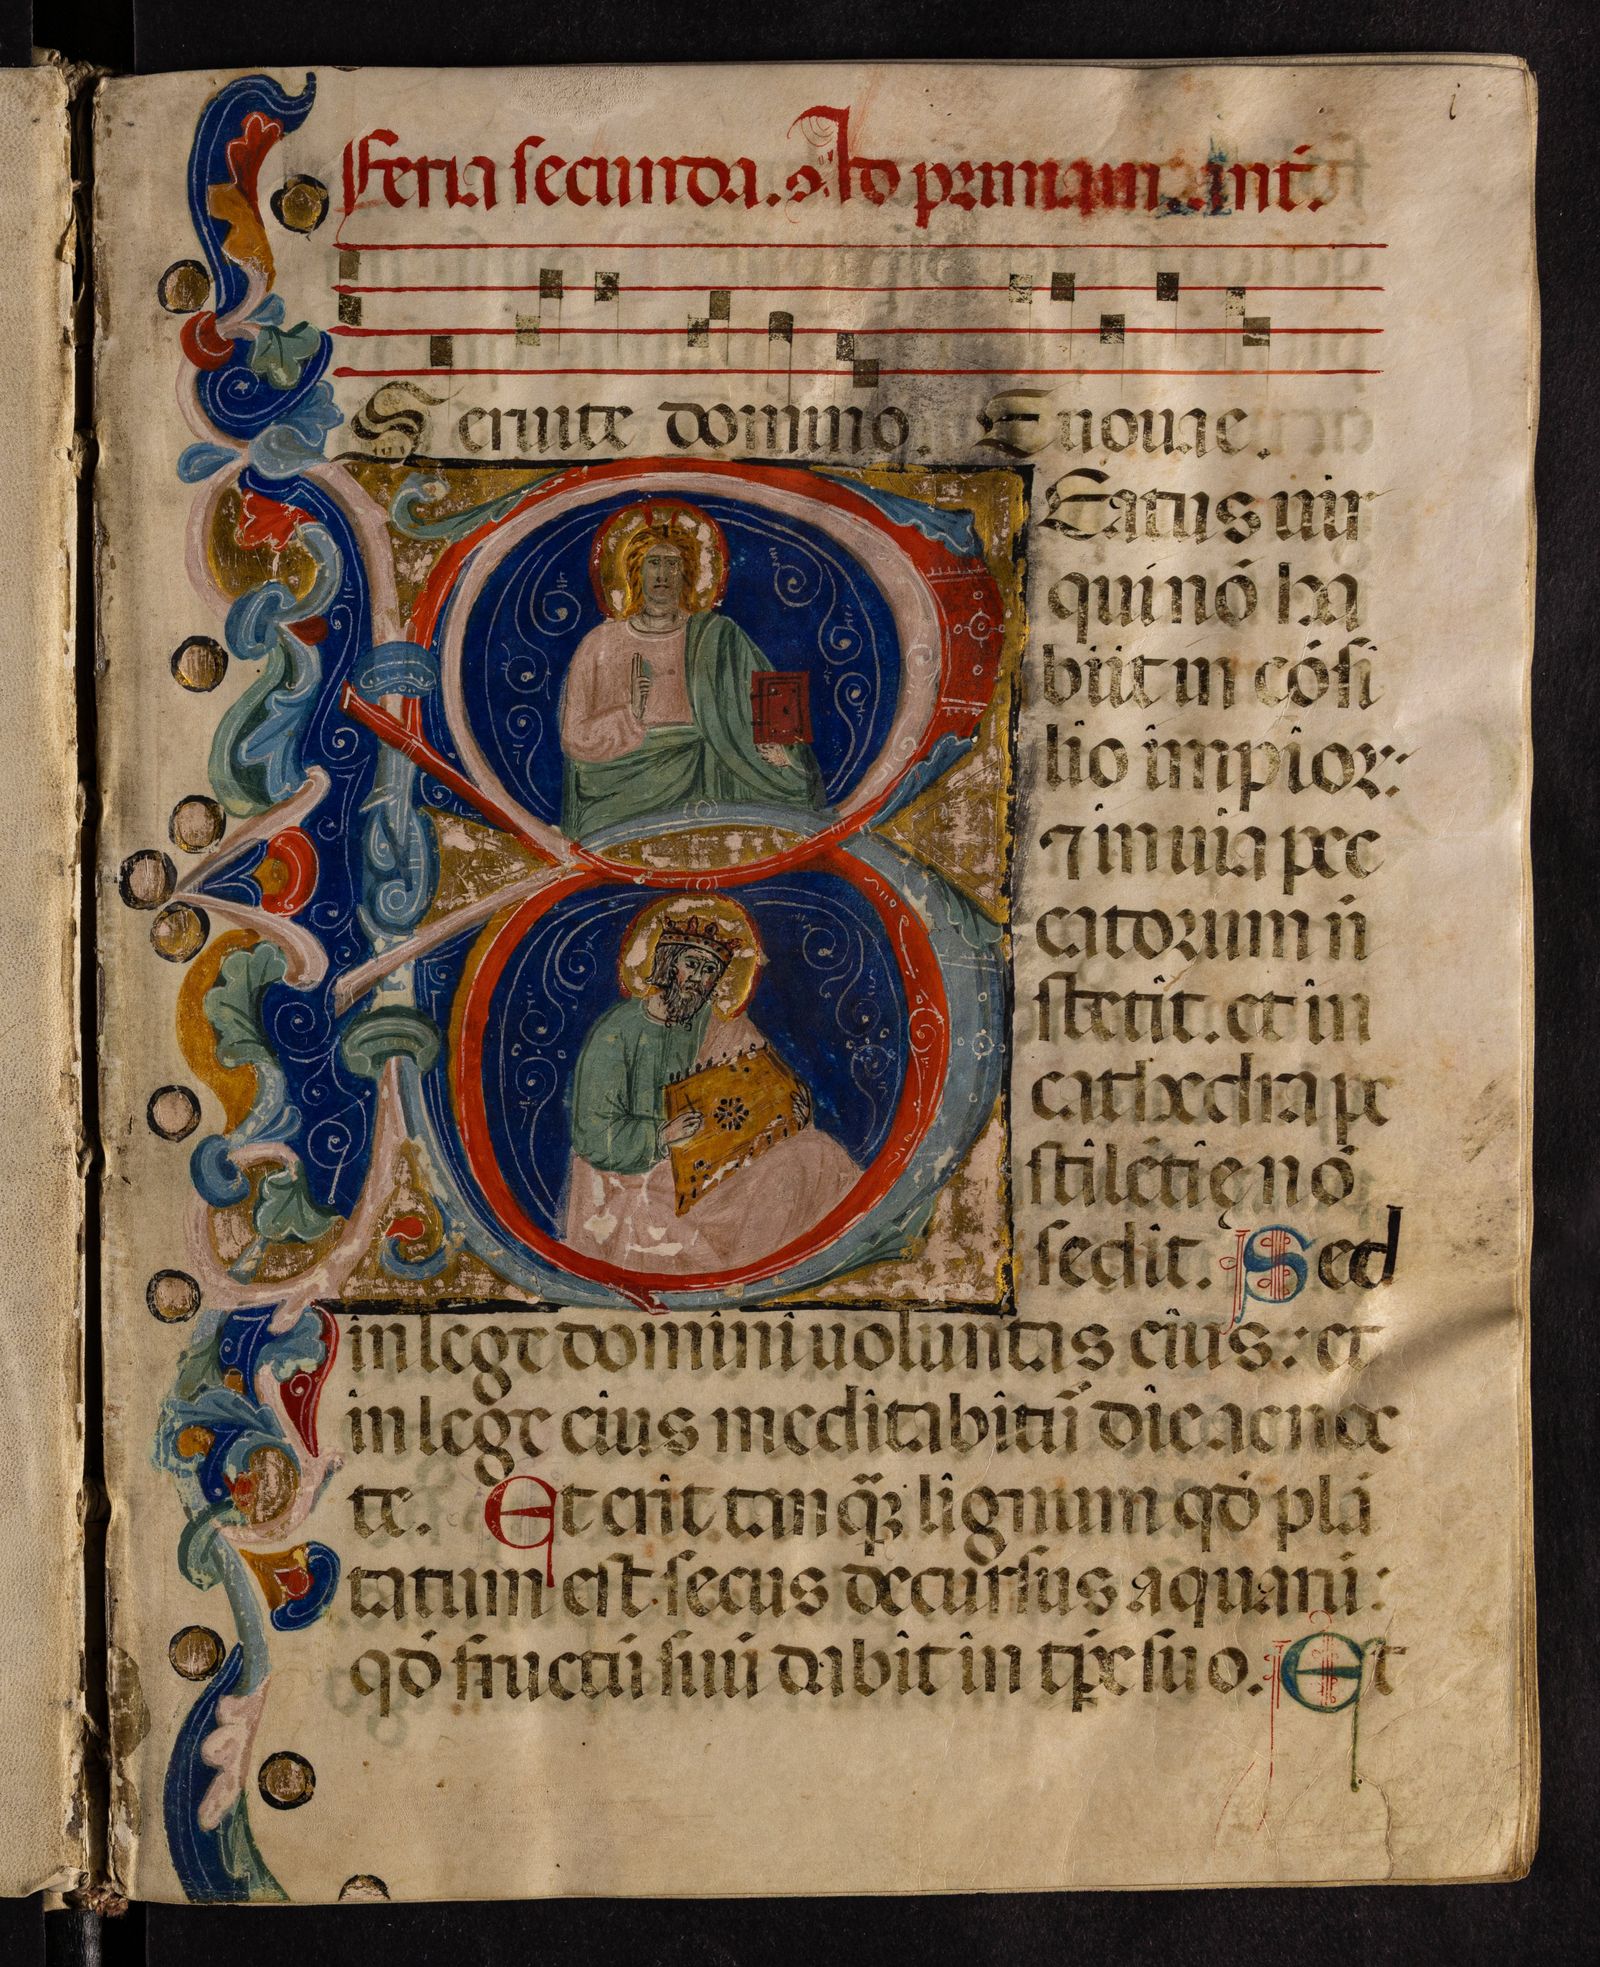 i
Feria secunda. Ad primam. ant̄.
Seruite domino. Euouae.
BEatus uir
qui nō ha
biit in cōsi
lio impior:
⁊ in uia pec
catorum n̄
stetit. et in
cathedra pe
stilētię nō
sedit. Sed
in lege domini uoluntas eius: et
in lege eius meditabit᷑ die ac noc
te. Et erit tanq̄ꝫ lignum qd̄ plā
tatum est secus decursus aquarū:
qd̄ fructū suū dabit in tp̄e suo. Et